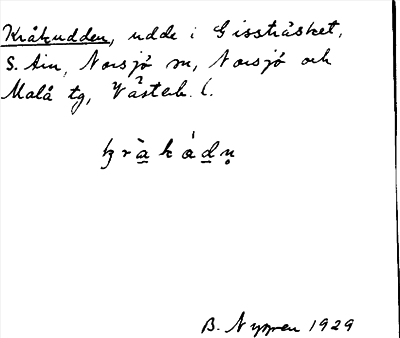 Kråkudden, udde i Gissträsket,
S. Ain, Norsjö sn, Norsjö och
Malå tg, Västerb. l.
B. Nygren 1929